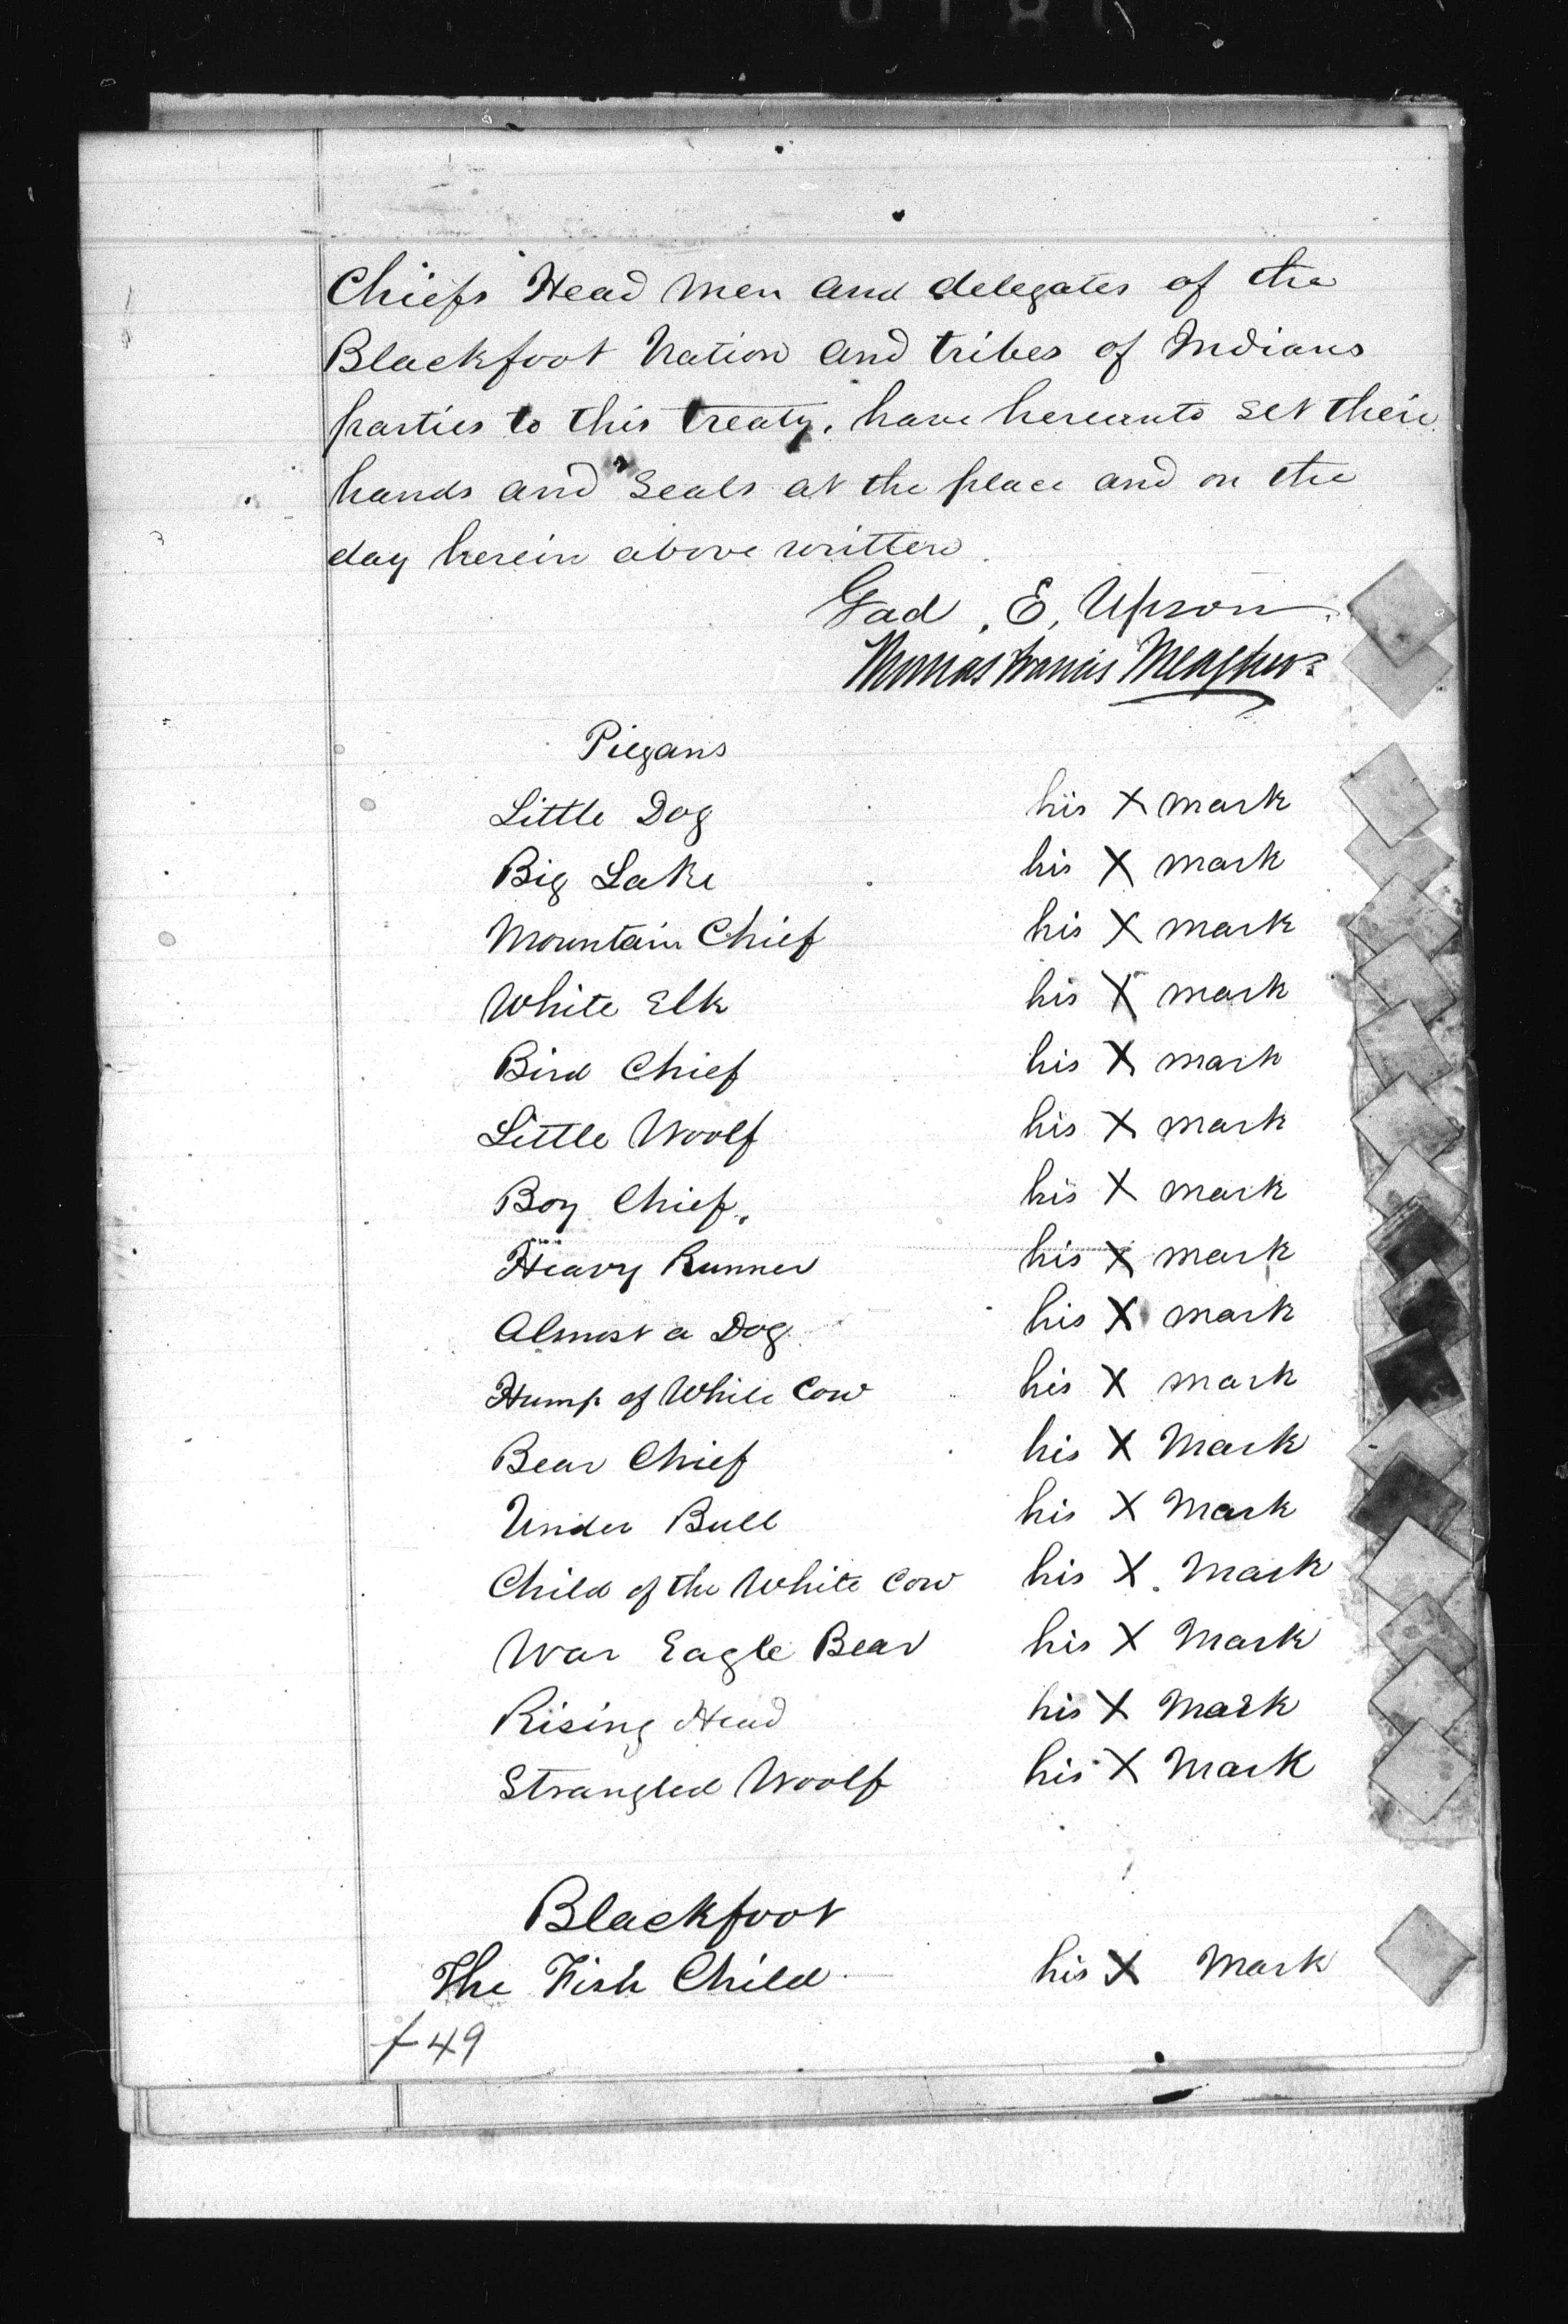 Chiefs Head Men and delegates of the
Blackfoot Nation and tribes of Indians
parties to this treaty, have hereunto set their
hands and seals at the place and on the
day herein above written.
Gad. E. Upson
Thomas Francis Meagher
Piegans
Little Dog his X mark
Big Lake his X mark
Mountain Chief his X mark
White Elk his X mark
Bird Chief his X mark
Little Woolf his X mark
Boy Chief. his X mark
Heavy Runner his X mark
Almost a Dog his X mark
Hump of White Cow his X mark
Bear Chief his X Mark
Under Bull his X Mark
Child of the White Cow his X Mark
War Eagle Bear his X Mark
Rising Head his X Mark
Strangled Woolf his X Mark
Blackfoot
The Fish Child his X Mark
f 49